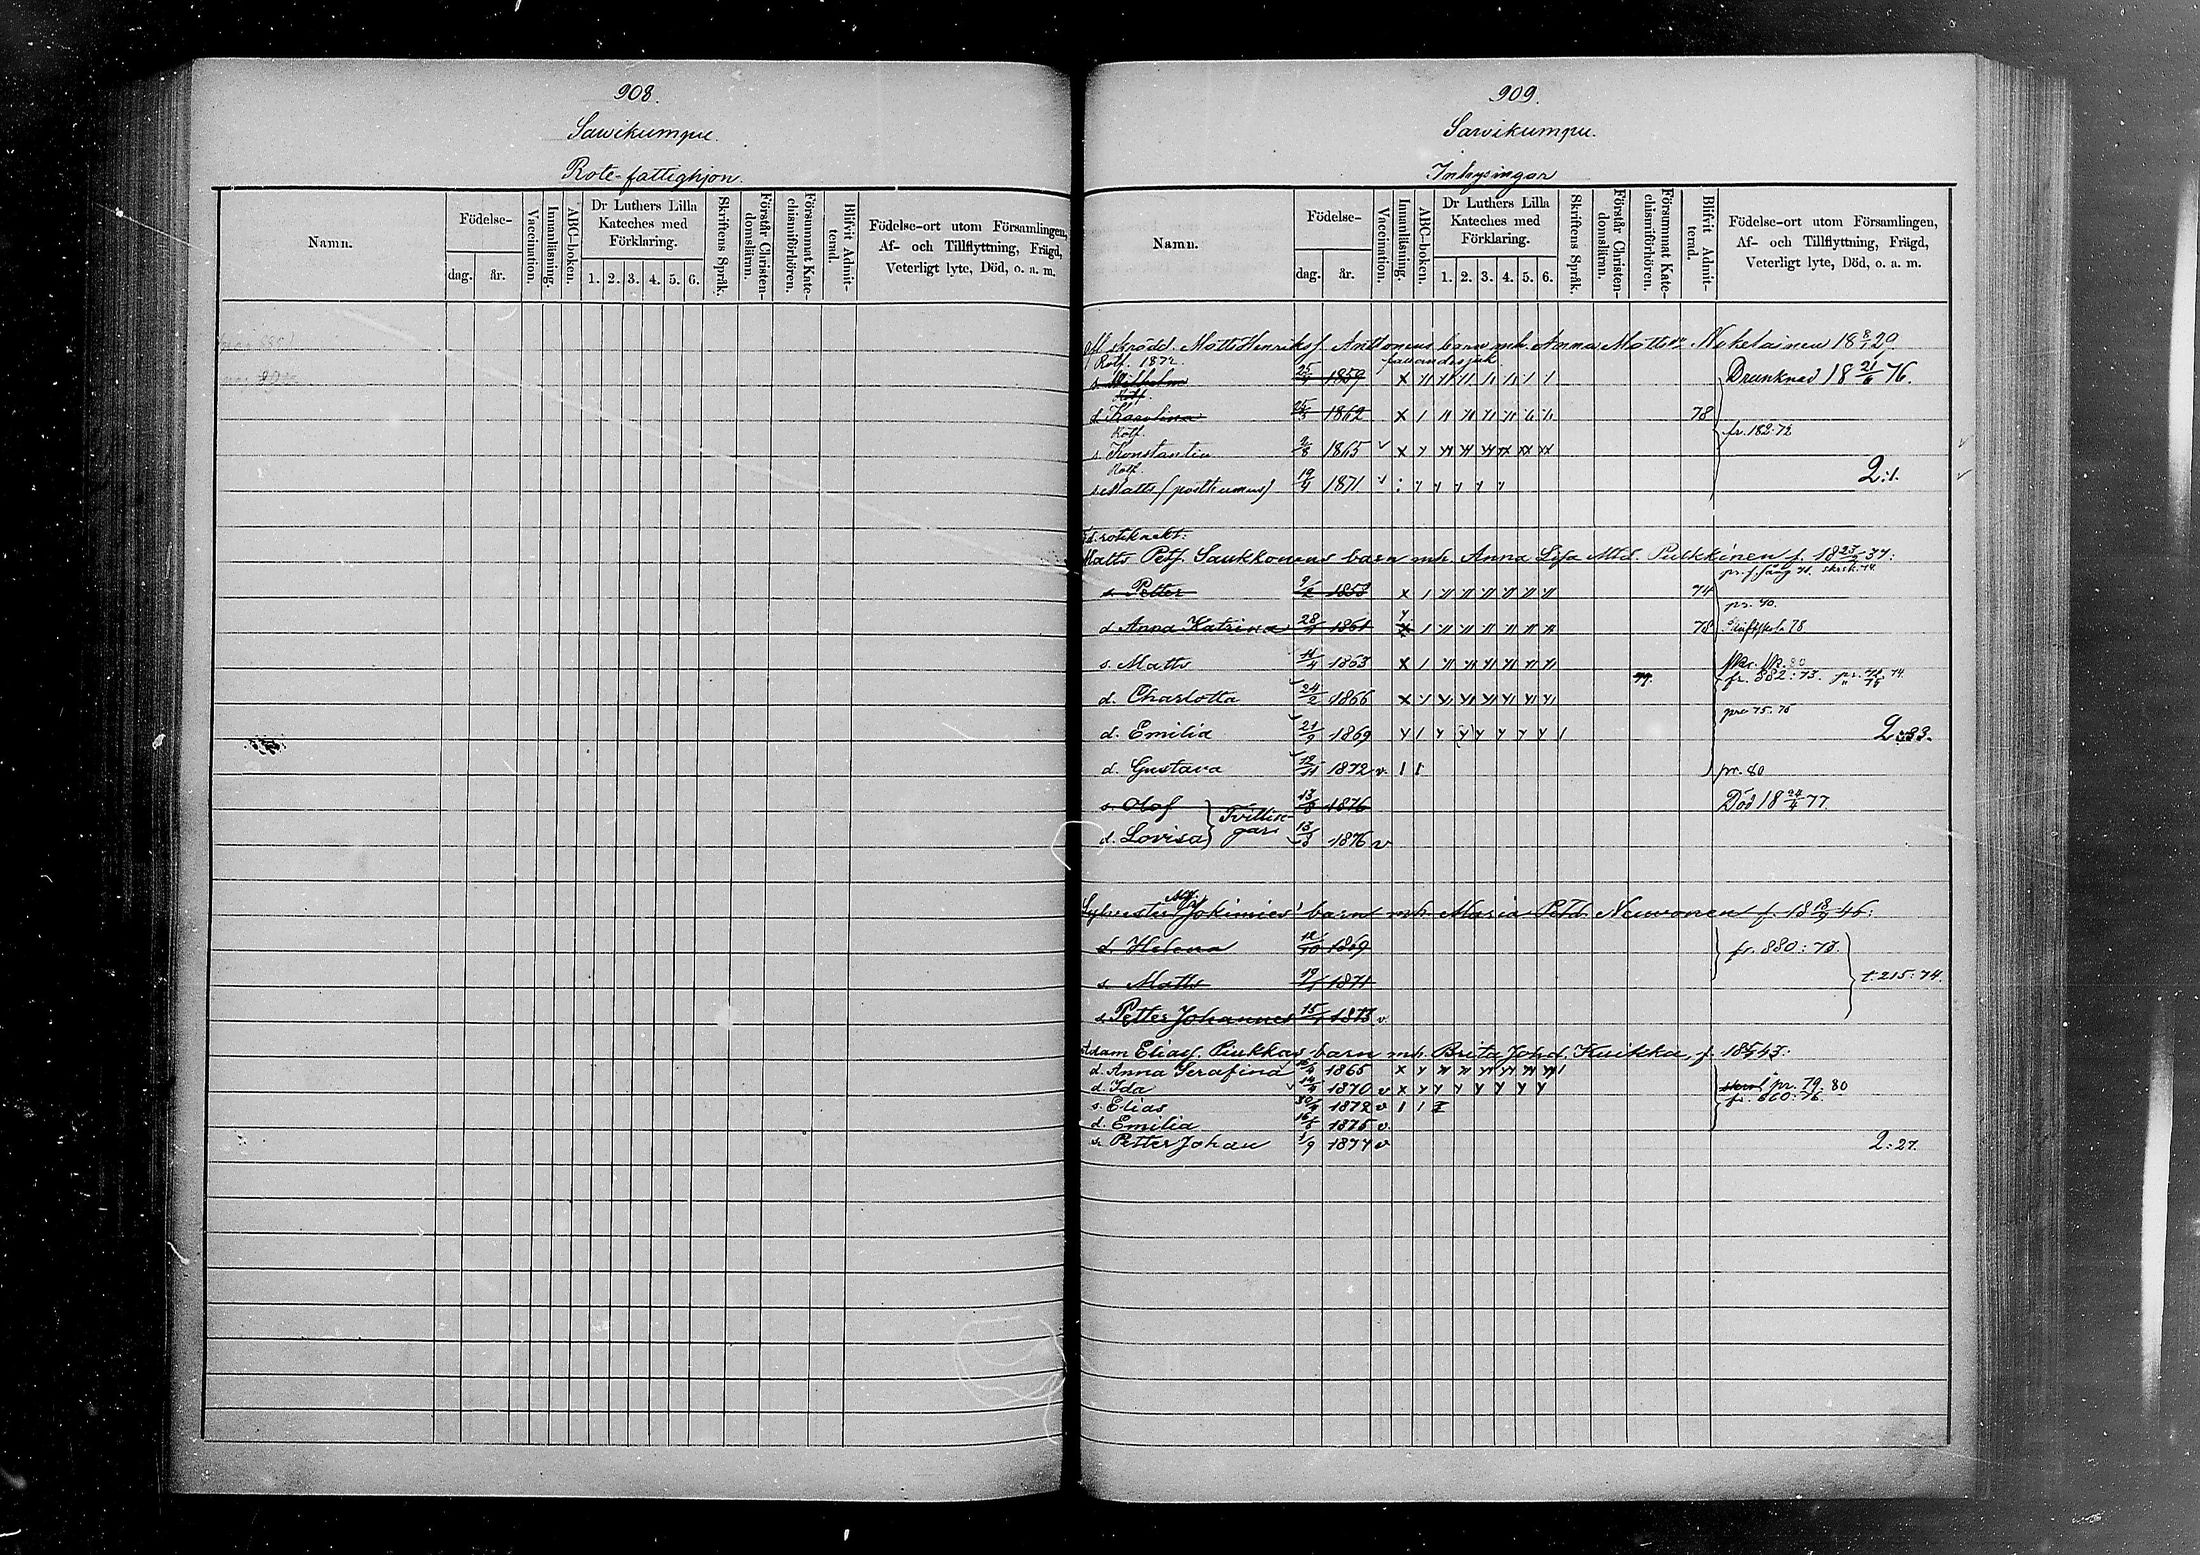 908.
Sawikumpu.
Rote-fattighjon.
Namn.
Födelse-
dag.
år.
Vaccination.
Innanläsning.
ABC-boken.
Dr Luthers Lilla
Kateches med
Förklaring.
1. 2. 3. 4. 5. 6.
Skriftens Språk.
Förstår Christen-
domsläran.
Försummat Kate-
chismiförhören.
Blifvit Admit-
terad.
Födelse-ort utom Församlingen,
Af- och Tillflyttning, Frägd,
Veterligt lyte, Död, o. a. m.
909.
Sawikumpu.
Inhysingar
Namn.
Födelse-
dag.
år.
Vaccination.
Innanläsning.
ABC-boken.
Dr Luthers Lilla
Kateches med
Förklaring.
1. 2. 3. 4. 5. 6.
Skriftens Språk.
Förstår Christen-
domsläran.
Försummat Kate-
chismiförhören.
Blifvit Admit-
terad.
Födelse-ort utom Församlingen,
Af- och Tillflyttning, Frägd,
Veterligt lyte, Död, o. a. m.
skrädd. Matts Henriksf Anttonens barn mh. Anna Mattsd. 18 8/1 29
1872 fallandesjuk
s. Wilhelm 1859 Drunknad 18 21/6 76.
d. Karolina 1862 78
fr. 182:72
s. Konstantin 2/8 1865
s. Matts (posthumus) 19/4 1871 2:1.
Matts Petf. Saukkonens barn mh. Anna Lisa Mtd. Pulkkinen f. 18 37:
s. Petter 1853 74
pr. 40.
d. Anna Katrina 28 1861 78
s. Matts 11/4 1863
fr. 882:73.
d. Charlotta 24/2 1866
d. Emilia 21/9 1869 2:33.
d. Gustava 12/11 1872 v. pr. 80
s. Olof 13 1876 Död 18 24/4 77.
Tvillin-
gar
d. Lovisa 13 1876 v
Sylvester Jokimies' barn mh. Maria Petd. Neuvonen f. 18 46:
d. Helena 1869 fr. 880:73.
s. Matts 19/1 1871 t. 215:74.
s. Petter Johannes 15/1 1873 v.
Adam Eliasf. Piukkas barn mh. Brita Johd. Kuikka, f. 18 43:
d. Anna Serafina 1865
d. Ida 1870 v pr. 79. 80
s. Elias 30 1872 v
d. Emilia 16 1875 v.
s. Petter Johan 1/9 1877 v 2:27.